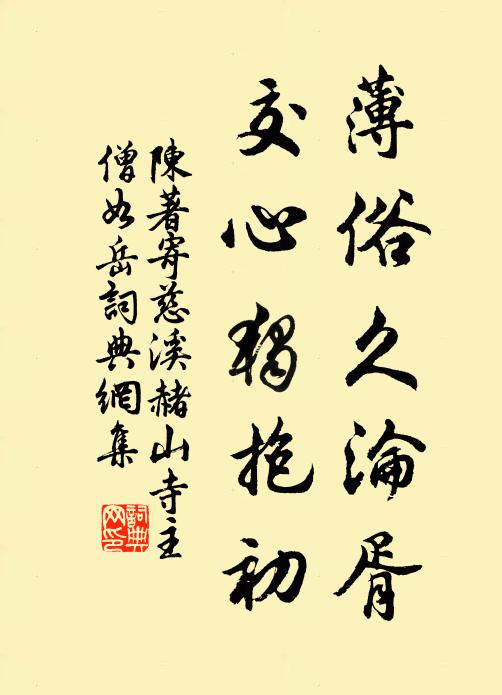 薄俗久淪胥
交心獨抱初
陳著寄慈溪赭山寺主
僧如岳詞典網集
詞典
网印